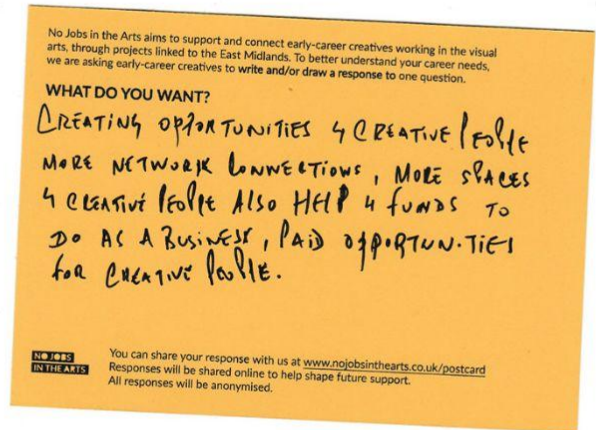 No Jobs in the Arts aims to support and connect early-career creatives working in the visual
arts, through projects linked to the East Midlands. To better understand your career needs,
we are asking early-career creatives to write and/or draw a response to one question.
WHAT DO YOU WANT?
CREATING OPPORTUNITIES 4 CREATIVE PEOPLE
MORE NETWORK CONNECTIONS, MORE SPACES
4 CREATIVE PEOPLE ALSO HELP 4 FUNDS TO
DO AS A BUSINESS, PAID OPPORTUNITIES
FOR CREATIVE PEOPLE.
NO JOBS
IN THE ARTS
You can share your response with us at www.nojobsinthearts.co.uk/postcard
Responses will be shared online to help shape future support.
All responses will be anonymised.